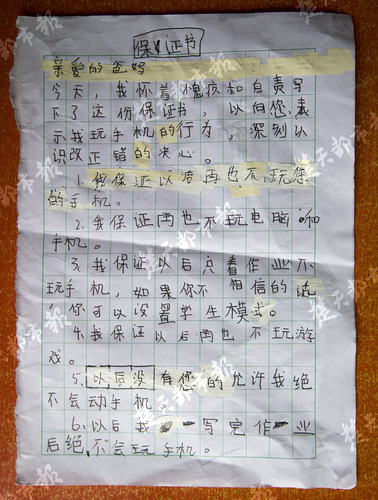 保证书
亲爱的爸妈
今天，我怀着愧疚和自责写
下了这份保证书，以向您表
示我玩手机的行为，深刻认
识改正错的决心。
1.我保证以后再也不玩您
的手机。
2.我保证再也不玩电脑和
手机。
3.我保证以后只看作业不
玩手机，如果你不相信的话
你可以设置学生模式。
4.我保证以后再也不玩游
戏。
5.以后没有您的允许我绝
不会动手机。
6.以后我写完作业
后绝不会玩手机。
楚天都市报